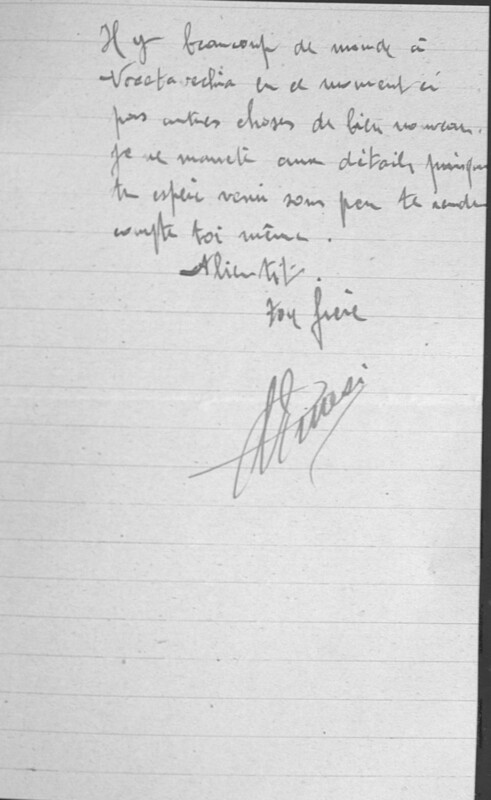 Il y beaucoup de monde à
en ce moment ci
pas autres choses de bien nouveau.
Je ne aux détails puisque
tu espère venir sous peu te rendre
compte toi même.
A bientôt.
Ton frère